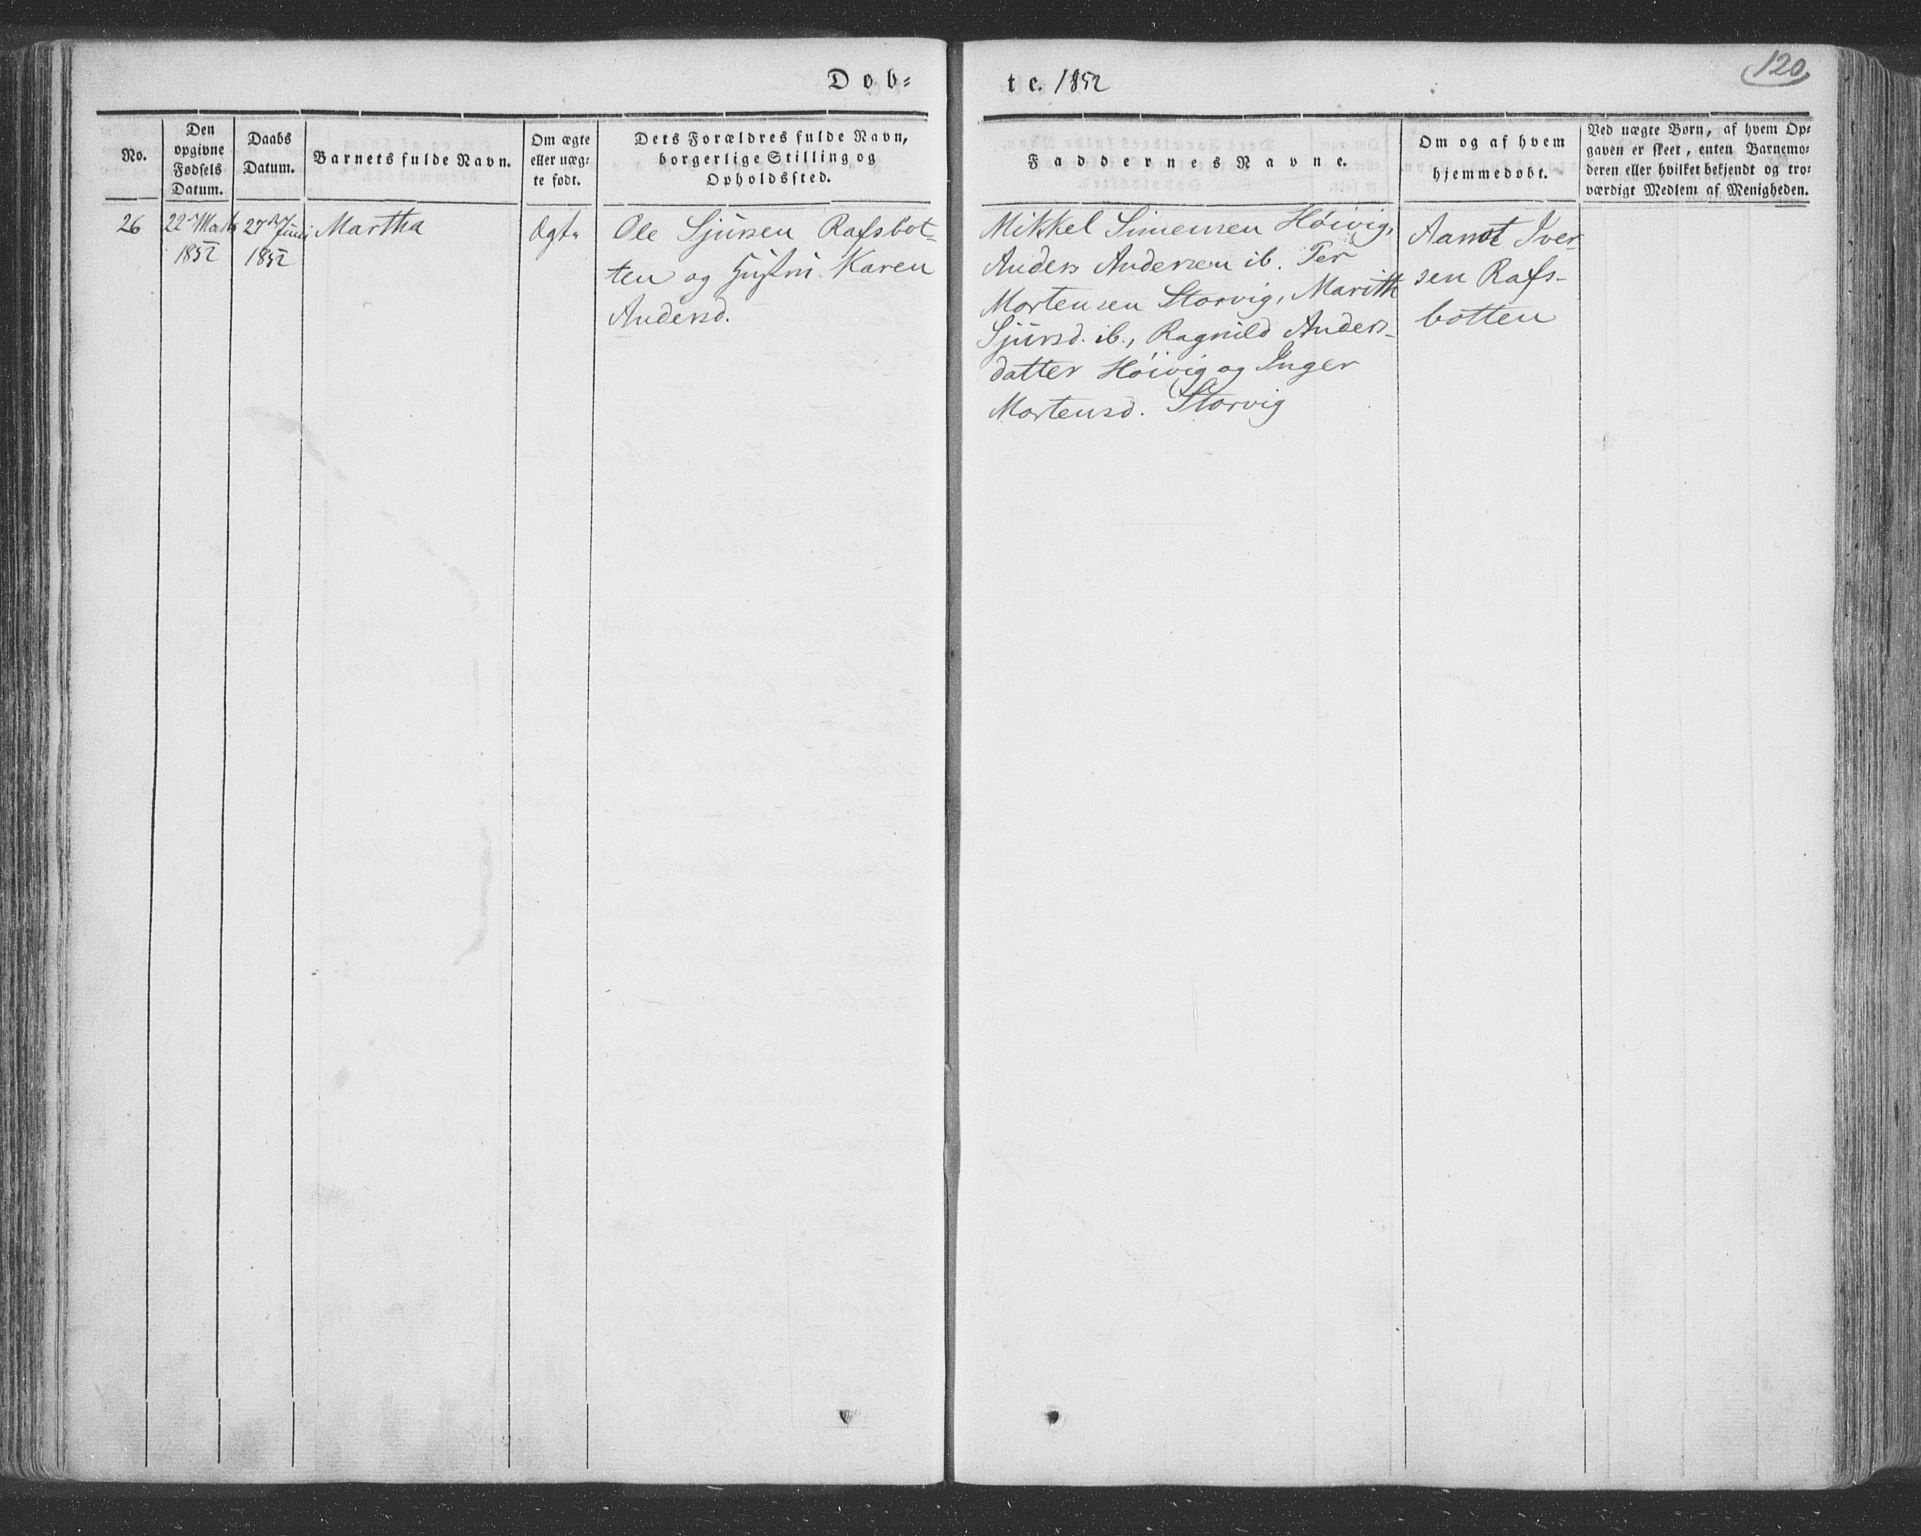 Døb=
te. 1852
120
No.
Den
opgivne
Fødsels
Datum.
Daabs
Datum.
Barnets fulde Navn.
Om ægte
eller uæg-
te født.
Dets Forældres fulde Navn,
borgerlige Stilling og
Opholdssted.
Faddernes Navne.
Om og af hvem
hjemmedøbt.
Ved uægte Børn, af hvem Op-
gaven er skeet, enten Barnemo-
deren eller hvilket bekjendt og tro-
værdigt Medlem af Menigheden.
26
22
1852
27de Juni
1852
Martha
Ægte
Ole Sjursen Rafsbot-
ten og Hustru Karen
Andersd.
Mikkel Simensen Høivig,
Anders Andersen ib. Per
Mortensen Storvig, Marith
Sjursd. ib., Ragnild Anders-
datter Høivig og Inger
Mortensd. Storvig
Iver-
sen Rafs-
botten